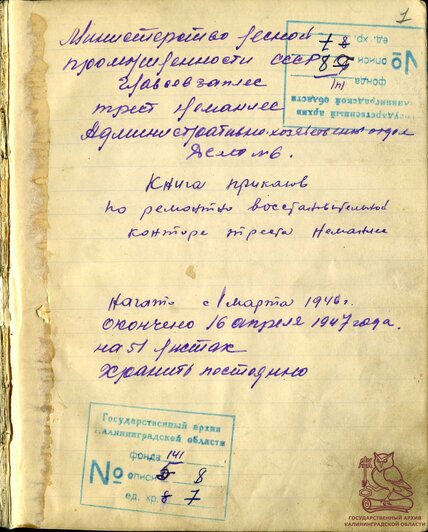 1
Министерство лесной
промышленности СССР
Главсевзаплес
трест Неманлес
Административно-хозяйственный отдел
Дело №
Книга приказов
по ремонтно восстановительной
конторе треста Неманлес
Начато с 1 марта 1946 г.
Окончено 16 апреля 1947 года.
на 51 листах
Хранить постоянно
Государственный архив
Калининградской области
фонда 141
№ описи 8
ед. хр. 7
Государственный архив
Калининградской области
фонда 141
№ описи 8
ед. хр. 7
ГОСУДАРСТВЕННЫЙ АРХИВ
КАЛИНИНГРАДСКОЙ ОБЛАСТИ